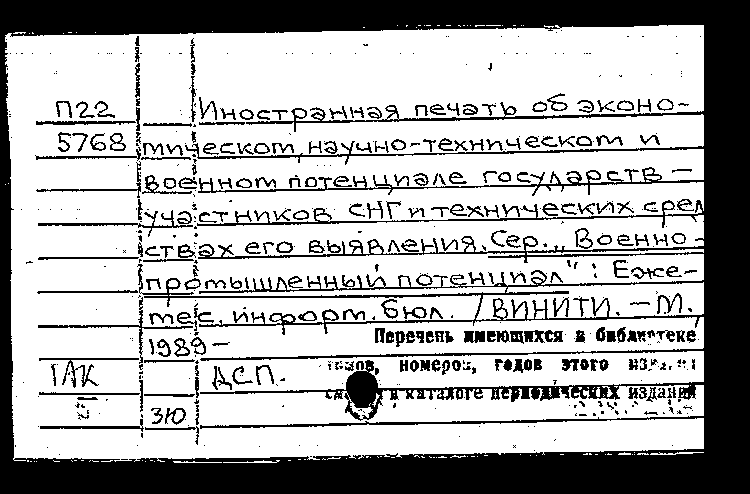 П22 Иностранная печать об эконо-
5768 мическом, научно-техническом и
военном потенциале государств –
участников СНГ и технических сред
ствах его выявления. Сер. „Военно-
промышленный потенциал": Еже-
мес. информ. бюл. /ВИНИТИ. – М.
1989 –
Перечень имеющихся в библиотеке
номеров, годов этого
ГАК ДСП.
в каталоге периодических изданий
3Ю